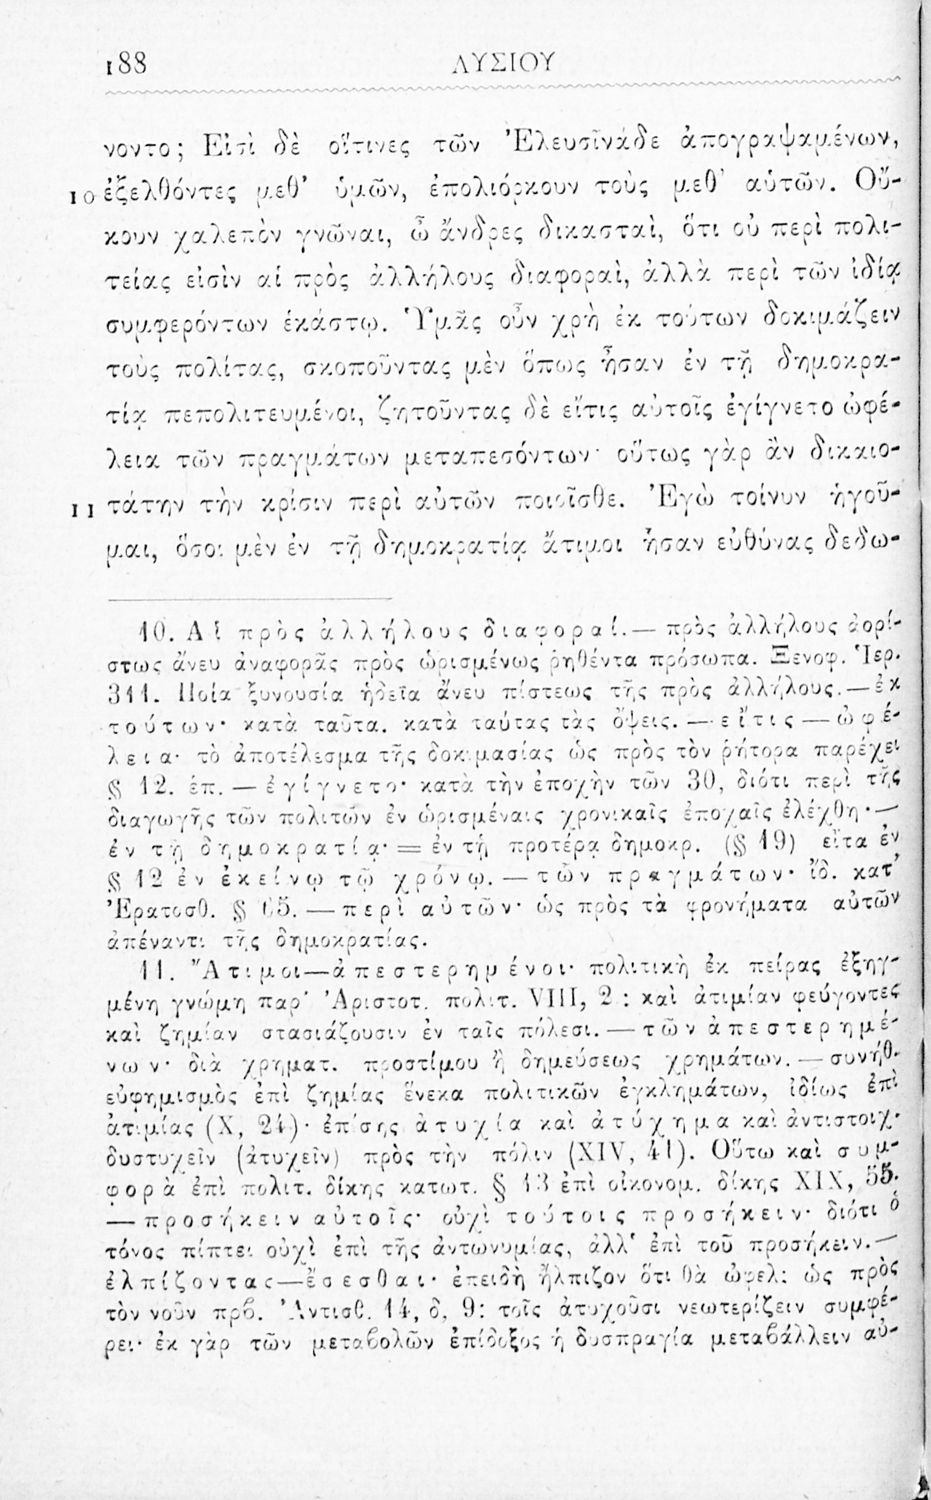 188 ΛΥΣΙΟΥ
νοντο; Εἰσὶ δὲ οἵτινες τῶν Ἐλευσῖνάδε ἀπογραψαμένων,
10 ἐξελθόντες μεθ’ ὑμῶν, ἐπολιόρκουν τοὺς μεθ’ αὑτῶν. Οὔ-
κουν χαλεπὸν γνῶναι, ὦ ἄνδρες δικασταὶ, ὅτι οὐ περὶ πολι-
τείας εἰσὶν αἱ πρὸς ἀλλήλους διαφοραὶ, ἀλλὰ περὶ τῶν ἰδίᾳ
συμφερόντων ἑκάστῳ. Ὑμᾶς οὖν χρὴ ἐκ τούτων δοκιμάζειν
τοὺς πολίτας, σκοποῦντας μὲν ὅπως ἦσαν ἐν τῇ δημοκρα-
τίᾳ πεπολιτευμένοι, ζητοῦντας δὲ εἴτις αὐτοῖς ἐγίγνετο ὠφέ-
λεια τῶν πραγμάτων μεταπεσόντων· οὕτως γὰρ ἂν δικαιο-
11 τάτην τὴν κρίσιν περὶ αὐτῶν ποιοῖσθε. Ἐγὼ τοίνυν ἡγοῦ-
μαι, ὅσοι μὲν ἐν τῇ δημοκρατίᾳ ἄτιμοι ἦσαν εὐθύνας δεδω-
10. Αἱ πρὸς ἀλλήλους διαφοραί.— πρὸς ἀλλήλους ἀορί-
στως ἄνευ ἀναφορᾶς πρὸς ὡρισμένως ῥηθέντα πρόσωπα. Ξενοφ. Ἱερ.
311. Ποία ξυνουσία ἡδεῖα ἄνευ πίστεως τῆς πρὸς ἀλλήλους.— ἐκ
τούτων· κατὰ ταῦτα. κατὰ ταύτας τὰς ὄψεις.— εἴτις — ὠφέ-
λεια· τὸ ἀποτέλεσμα τῆς δοκιμασίας ὡς πρὸς τὸν ῥήτορα παρέχει
§ 12. ἑπ. — ἐγίγνετο· κατὰ τὴν ἐποχὴν τῶν 30, διότι περὶ τῆς
διαγωγῆς τῶν πολιτῶν ἐν ὡρισμέναις χρονικαῖς ἐποχαῖς ἐλέχθη·—
ἐν τῇ δημοκρατίᾳ· = ἐν τῇ προτέρᾳ δημοκρ. (§ 19) εἶτα ἐν
§ 12 ἐν ἐκείνῳ τῷ χρόνῳ. — τῶν πραγμάτων· ἴδ. κατ’
Ἐρατοσθ. § 65. — περὶ αὐτῶν· ὡς πρὸς τὰ φρονήματα αὐτῶν
ἀπέναντι τῆς δημοκρατίας.
11. Ἄτιμοι—ἀπεστερημένοι· πολιτικὴ ἐκ πείρας ἐξηγ-
μένη γνώμη παρ’ Ἀριστοτ. πολιτ. VIII, 2 : καὶ ἀτιμίαν φεύγοντες
καὶ ζημίαν στασιάζουσιν ἐν ταῖς πόλεσι. — τῶν ἀπεστερημέ-
νων· διὰ χρηματ. προστίμου ἢ δημεύσεως χρημάτων. — συνήθ.
εὐφημισμὸς ἐπὶ ζημίας ἕνεκα πολιτικῶν ἐγκλημάτων, ἰδίως ἐπὶ
ἀτιμίας (X, 24)· ἐπίσης ἀτυχία καὶ ἀτύχημα καὶ ἀντιστοιχ.
δυστυχεῖν (ἀτυχεῖν) πρὸς τὴν πόλιν (XIV, 41). Οὕτω καὶ συμ-
φορὰ ἐπὶ πολιτ. δίκης κατωτ. § 13 ἐπὶ οἰκονομ. δίκης XIX, 55.
— προσήκειν αὐτοῖς· οὐχὶ τούτοις προσήκειν· διότι ὁ
τόνος πίπτει οὐχὶ ἐπὶ τῆς ἀντωνυμίας, ἀλλ’ ἐπὶ τοῦ προσήκειν.—
ἐλπίζοντας—ἔσεσθαι· ἐπειδὴ ἤλπιζον ὅτι θὰ ὠφελ: ὡς πρὸς
τὸν νοῦν πρβ. Ἀντισθ. 14, δ, 9: τοῖς ἀτυχοῦσι νεωτερίζειν συμφέ-
ρει· ἐκ γὰρ τῶν μεταβολῶν ἐπίδοξος ἡ δυσπραγία μεταβάλλειν αὐ-